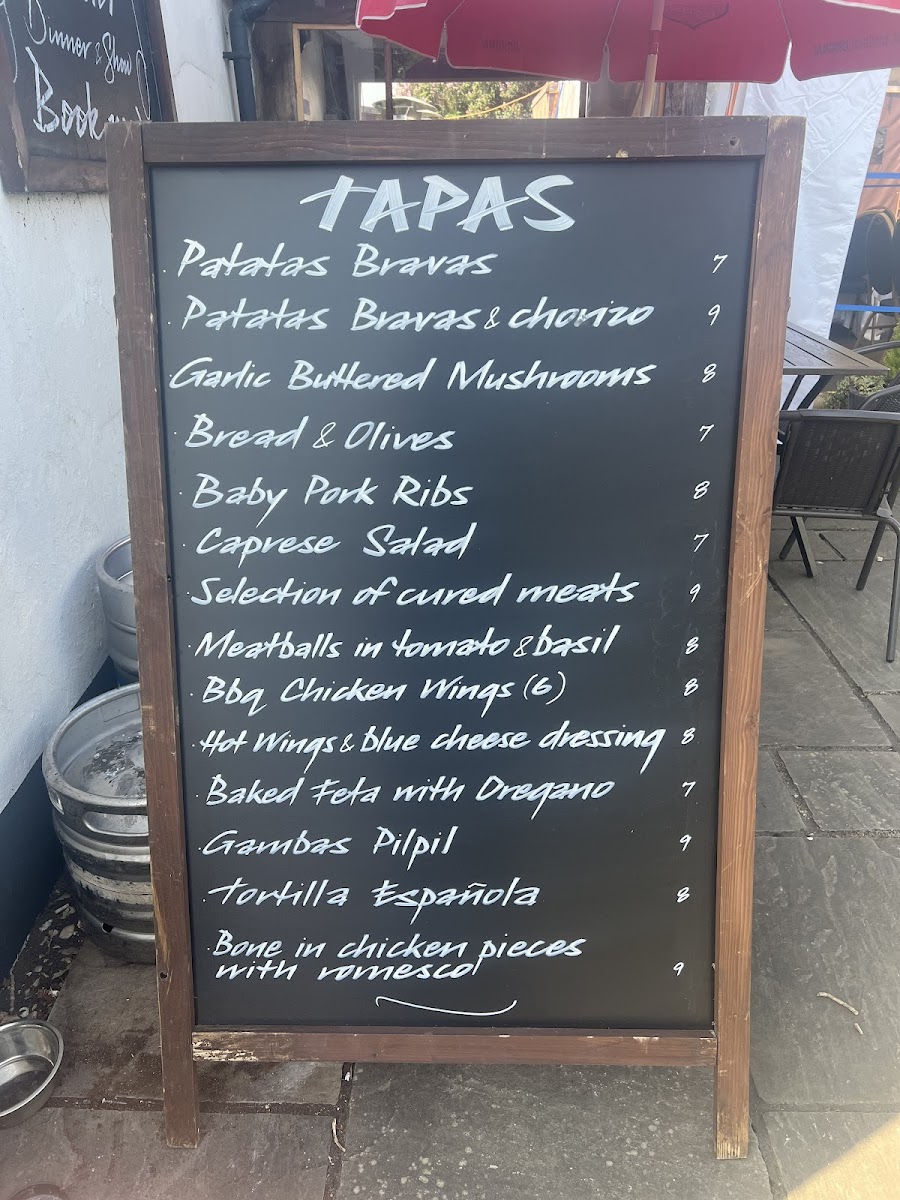 Dinner & Show
Book
TAPAS
· Patatas Bravas 7
· Patatas Bravas & chorizo 9
· Garlic Buttered Mushrooms 8
· Bread & Olives 7
· Baby Pork Ribs 8
· Caprese Salad 7
· Selection of cured meats 9
· Meatballs in tomato & basil 8
· Bbq Chicken Wings (6) 8
· Hot Wings & blue cheese dressing 8
· Baked Feta with Oregano 7
· Gambas Pilpil 9
· Tortilla Española 8
· Bone in chicken pieces
with romesco 9